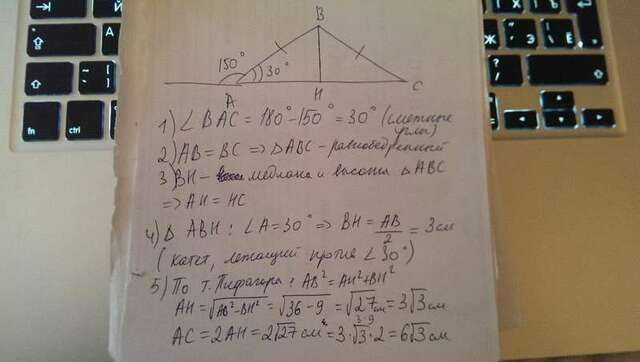 B
150°
30°
A
H
C
1) ∠BAC = 180° - 150° = 30° (смежные
углы)
2) AB = BC => △ABC - равнобедренный
3) BH - медиана и высота △ABC
=> AH = HC
4) △ ABH : ∠A = 30° => BH = AB/2 = 3 см
(катет, лежащий против ∠30°)
5) По т. Пифагора: AB² = AH² + BH²
AH = √AB² - BH² = √36 - 9 = √27 см = 3√3 см
3·9
AC = 2AH = 2√27 см = 3·√3·2 = 6√3 см
fn
ctrl
Ч
С
Ё
Э